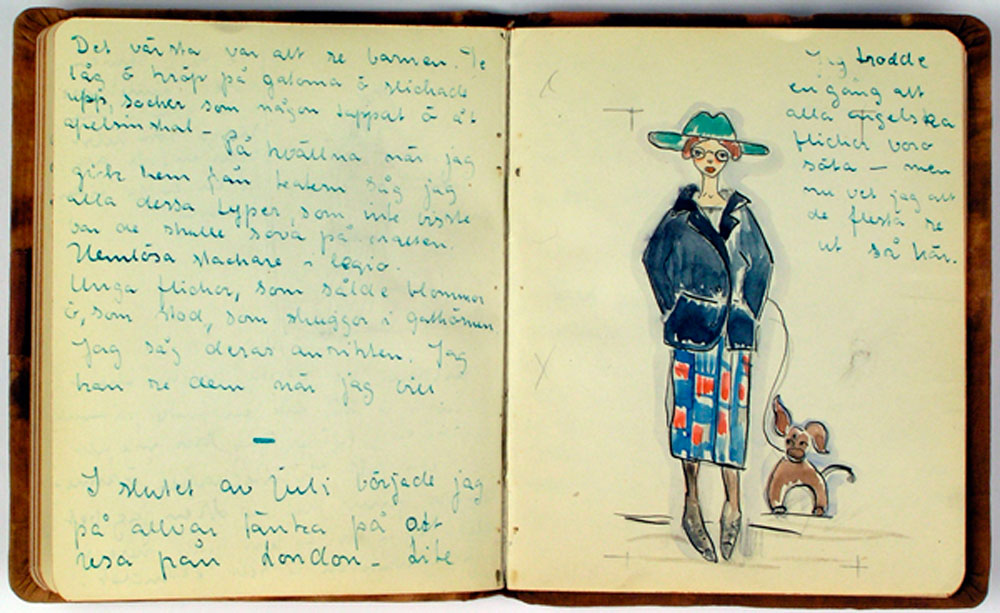 Det värsta var att se barnen. De
låg ö kröp på gatorna ö slickade
upp, sacher som någon tappat ö åt
apelsinskal –
På kvällna när jag
gick hem från teatern såg jag
alla dessa typer, som inte visste
var de skulle sova på natten.
Hemlösa stackare i legio.
Unga flickor, som sålde blommor
ö, som stod, som skuggor i gathörnen
Jag såg deras ansikten. Jag
kan se dem när jag vill
–
I slutet av Juli började jag
på allvar tänka på att
resa från London – Lite
Jag trodde
en gång att
alla engelska
flickor voro
söta – men
nu vet jag att
de flesta se
ut så här.